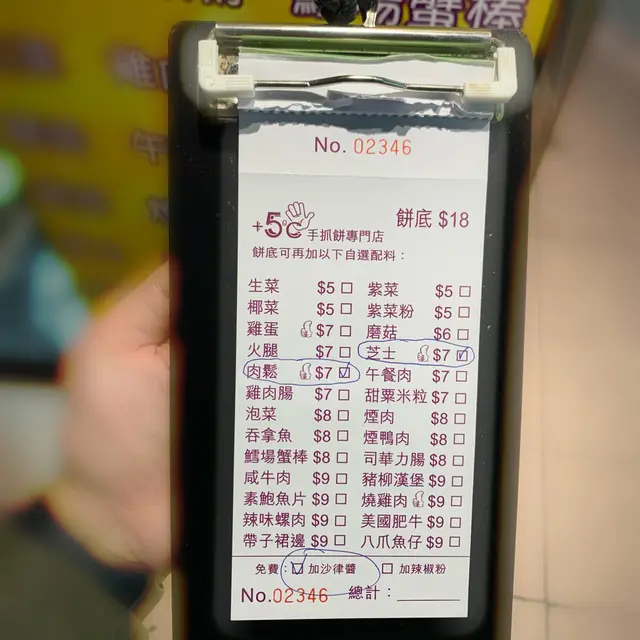 鱈場蟹棒
No. 02346
餅底 $18
+5℃ 手抓餅專門店
餅底可再加以下自選配料：
生菜 $5 □ 紫菜 $5 □
椰菜 $5 □ 紫菜粉 $5 □
雞蛋 $7 □ 磨菇 $6 □
火腿 $7 □ 芝士 $7 ☑
肉鬆 $7 ☑ 午餐肉 $7 □
雞肉腸 $7 □ 甜粟米粒 $7 □
泡菜 $8 □ 煙肉 $8 □
吞拿魚 $8 □ 煙鴨肉 $8 □
鱈場蟹棒 $8 □ 司華力腸 $8 □
咸牛肉 $9 □ 豬柳漢堡 $9 □
素鮑魚片 $9 □ 燒雞肉 $9 □
辣味螺肉 $9 □ 美國肥牛 $9 □
帶子裙邊 $9 □ 八爪魚仔 $9 □
免費：☑ 加沙律醬 □ 加辣椒粉
No.02346 總計：